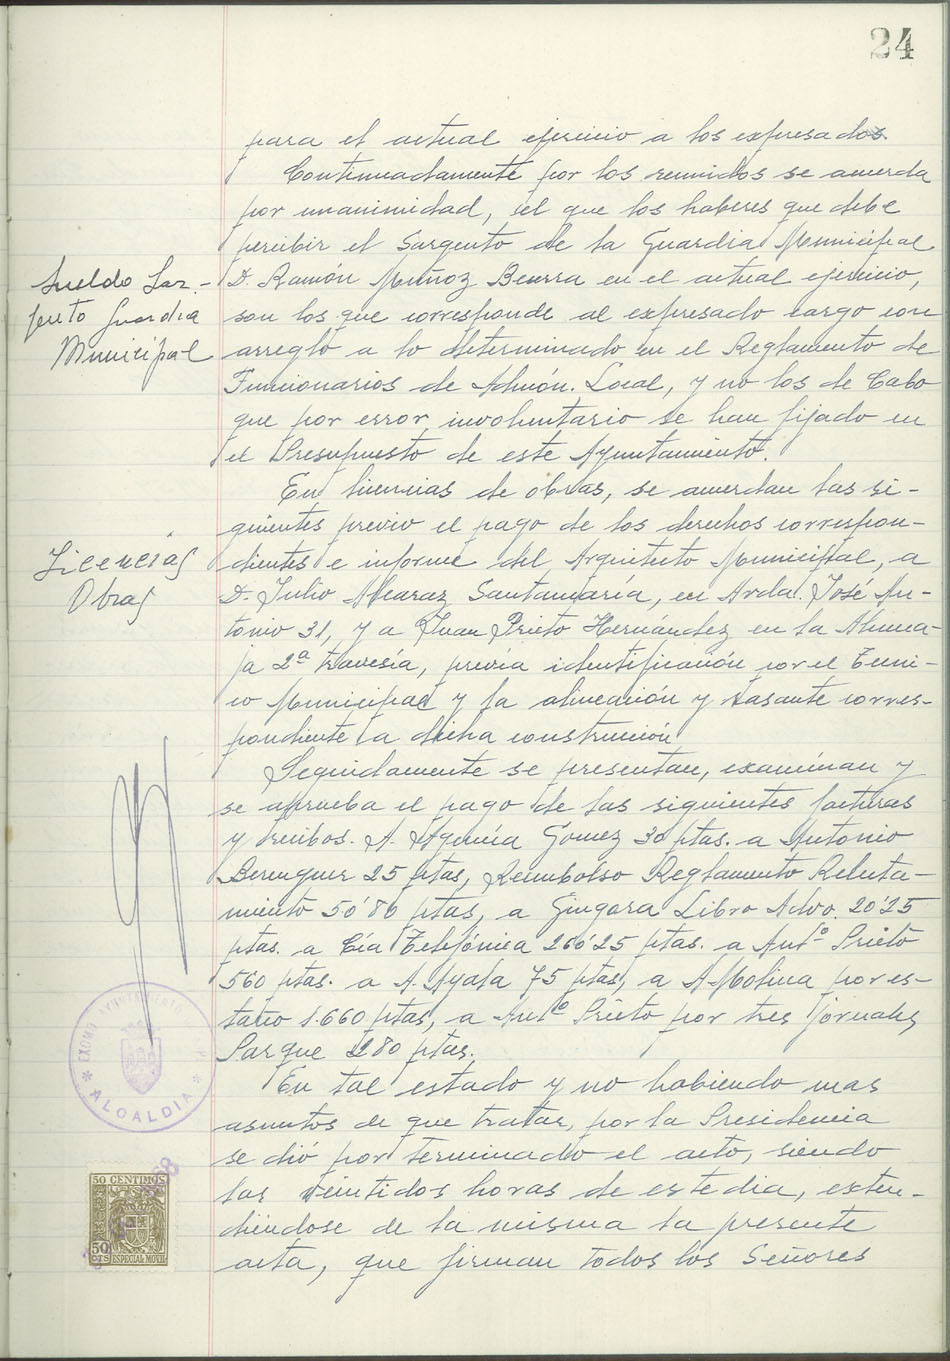 24
para el actual ejercicio a los expresados.
Continuadamente por los reunidos se acuerda
por unanimidad, el que los haberes que debe
percibir el Sargento de la Guardia Municipal
Sueldo Sar-
gento Guardia
Municipal
D. Ramón Muñoz Becerra en el actual ejercicio,
son los que corresponde al expresado cargo con
arreglo a lo determinado en el Reglamento de
Funcionarios de Admón. Local, y no los de Cabo
que por error involuntario se han fijado en
el Presupuesto de este Ayuntamiento.
En licencias de obras, se acuerdan las si-
guientes previo el pago de los derechos correspon-
Licencias
Obras
dientes e informe del Arquitecto Municipal, a
D. Julio Alcaraz Santamaría, en Avda. José An-
tonio 31, y a Juan Prieto Hernández en la
2ª travesía, previa identificación por el Tecni-
co Municipal y la alineación y rasante corres-
pondiente a dicha construcción
Seguidamente se presentan, examinan y
se aprueba el pago de las siguientes facturas
y recibos. A. Agencia Gomez 30 ptas. a Antonio
Berenguer 25 ptas, Reembolso Reglamento Reluta-
miento 50'80 ptas, a Libro Advo. 20'25
ptas. a Cía Telefónica 260'25 ptas. a Antº Prieto
560 ptas. a A. Ayala 75 ptas, a A Molina por es-
tatio 1.660 ptas, a Antº Prieto por tres jornales
Parque 280 ptas.
En tal estado y no habiendo mas
asuntos de que tratar, por la Presidencia
se dió por terminado el acto, siendo
las veintidos horas de este dia, exten-
diéndose de la misma la presente
acta, que firman todos los Señores
EXCMO. AYUNTAMIENTO
* ALCALDIA *
50 CENTIMOS
50
CTS ESPECIAL MOVIL